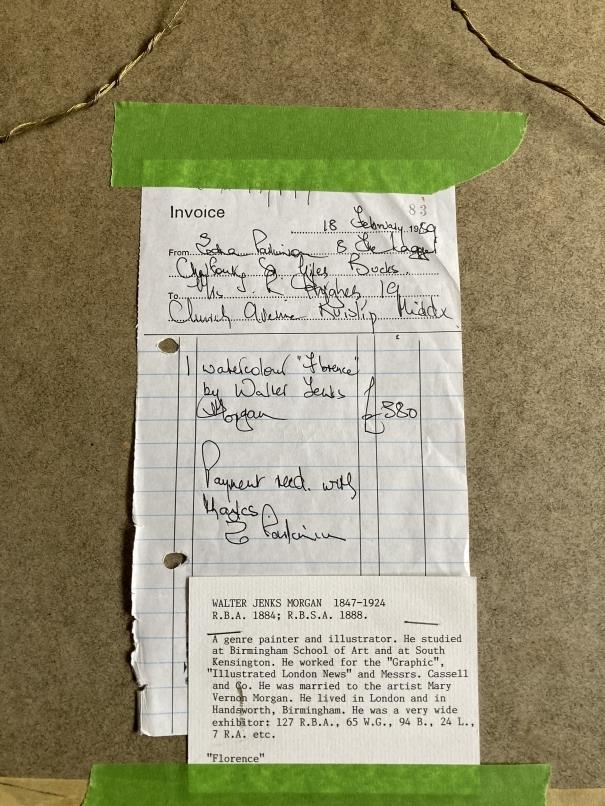 Invoice 83
18 February 1989
From Parkinson 8 The
Chalfont St Giles Bucks.
To Mrs R Hughes 19
Church Avenue Ruislip Middx
1 watercolour "Florence"
by Walter Jenks
Morgan £380
Payment recd. with
thanks
Z Parkinson
WALTER JENKS MORGAN 1847-1924
R.B.A. 1884; R.B.S.A. 1888.
A genre painter and illustrator. He studied
at Birmingham School of Art and at South
Kensington. He worked for the "Graphic",
"Illustrated London News" and Messrs. Cassell
and Co. He was married to the artist Mary
Vernon Morgan. He lived in London and in
Handsworth, Birmingham. He was a very wide
exhibitor: 127 R.B.A., 65 W.G., 94 B., 24 L.,
7 R.A. etc.
"Florence"